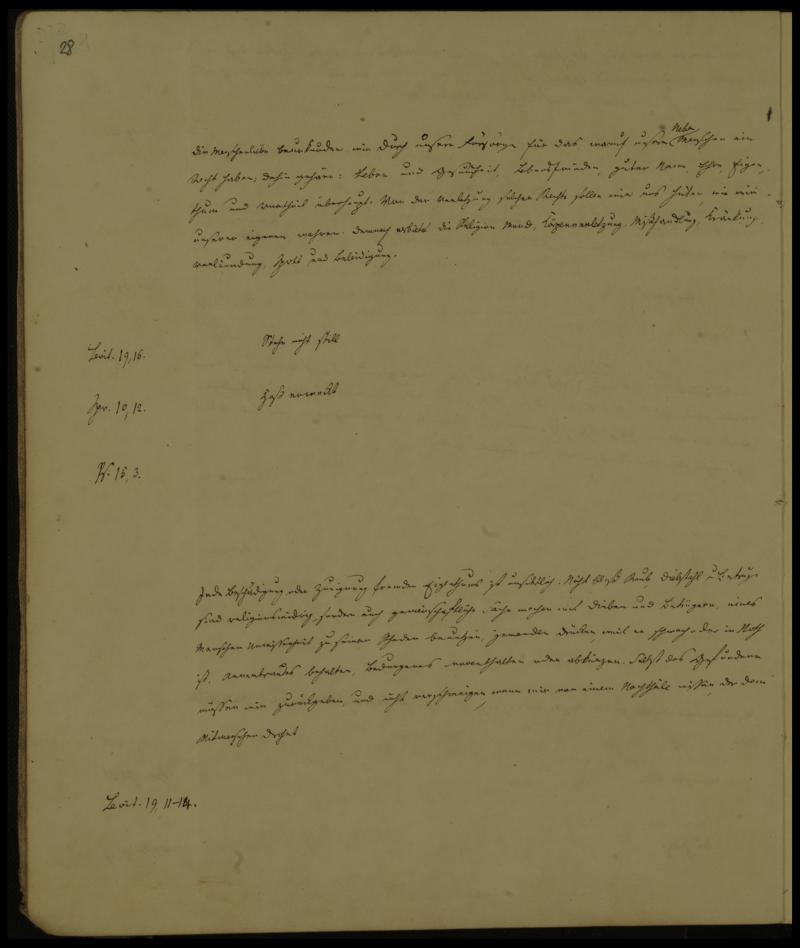 28
Die Menschenliebe bekunden wir durch unsere Fürsorge für das worauf unsere Neben Menschen ein
Recht haben; dahin gehören: Leben und Gesundheit, Lebensfrieden, guter Name, Ehre, Eigen-
thum und überhaupt. Vor der Verletzung solcher Rechte sollen wir uns hüten, wie wir
unserer eigenen wahren. Demnach verbietet die Religion Mord, Körperverletzung, Mißhandlung, Kränkung,
Verläumdung, Spott und Beleidigung.
Levit. 19,16. Stehe nicht still
Spr. 10,12. Haß erweckt
Ps. 15,3.
Jede Beschädigung oder Zueignung fremden Eigenthums ist unsittlich. Nicht bloß Raub, Diebstahl u Betrug
sind religionswidrig, sondern auch gemeinschaftliche Sache machen mit Dieben und Betrügern, eines
Menschen Unwissenheit zu seinem Schaden benutzen, jemanden drücken, weil er schwach oder in Noth
ist, Anvertrautes behalten, Bedungenes vorenthalten oder abkürzen. Selbst das Gefundene
müssen wir zurückgeben, und nicht verschweigen, wenn wir von einem Nachtheile wissen, der dem
Mitmenschen drohet
Levit. 19, 11-14.